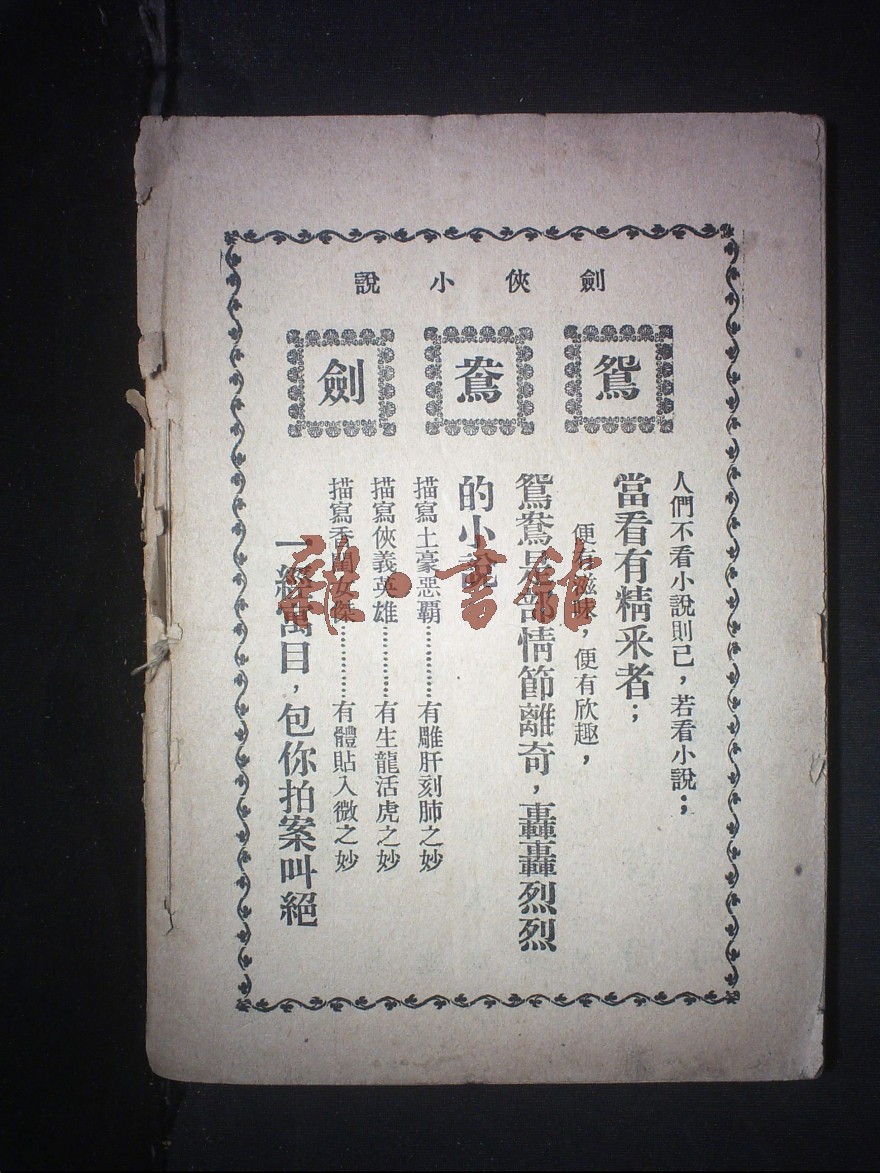 劍俠小說
鴛鴦劍
人們不看小說則已，若看小說；
當看有精釆者；
便有滋味，便有欣趣，
鴛鴦是部情節離奇，轟轟烈烈
的小說
描寫土豪惡霸…………有雕肝刻肺之妙
描寫俠義英雄…………有生龍活虎之妙
描寫香閨女傑…………有體貼入微之妙
一經寓目，包你拍案叫絕
雜·書館